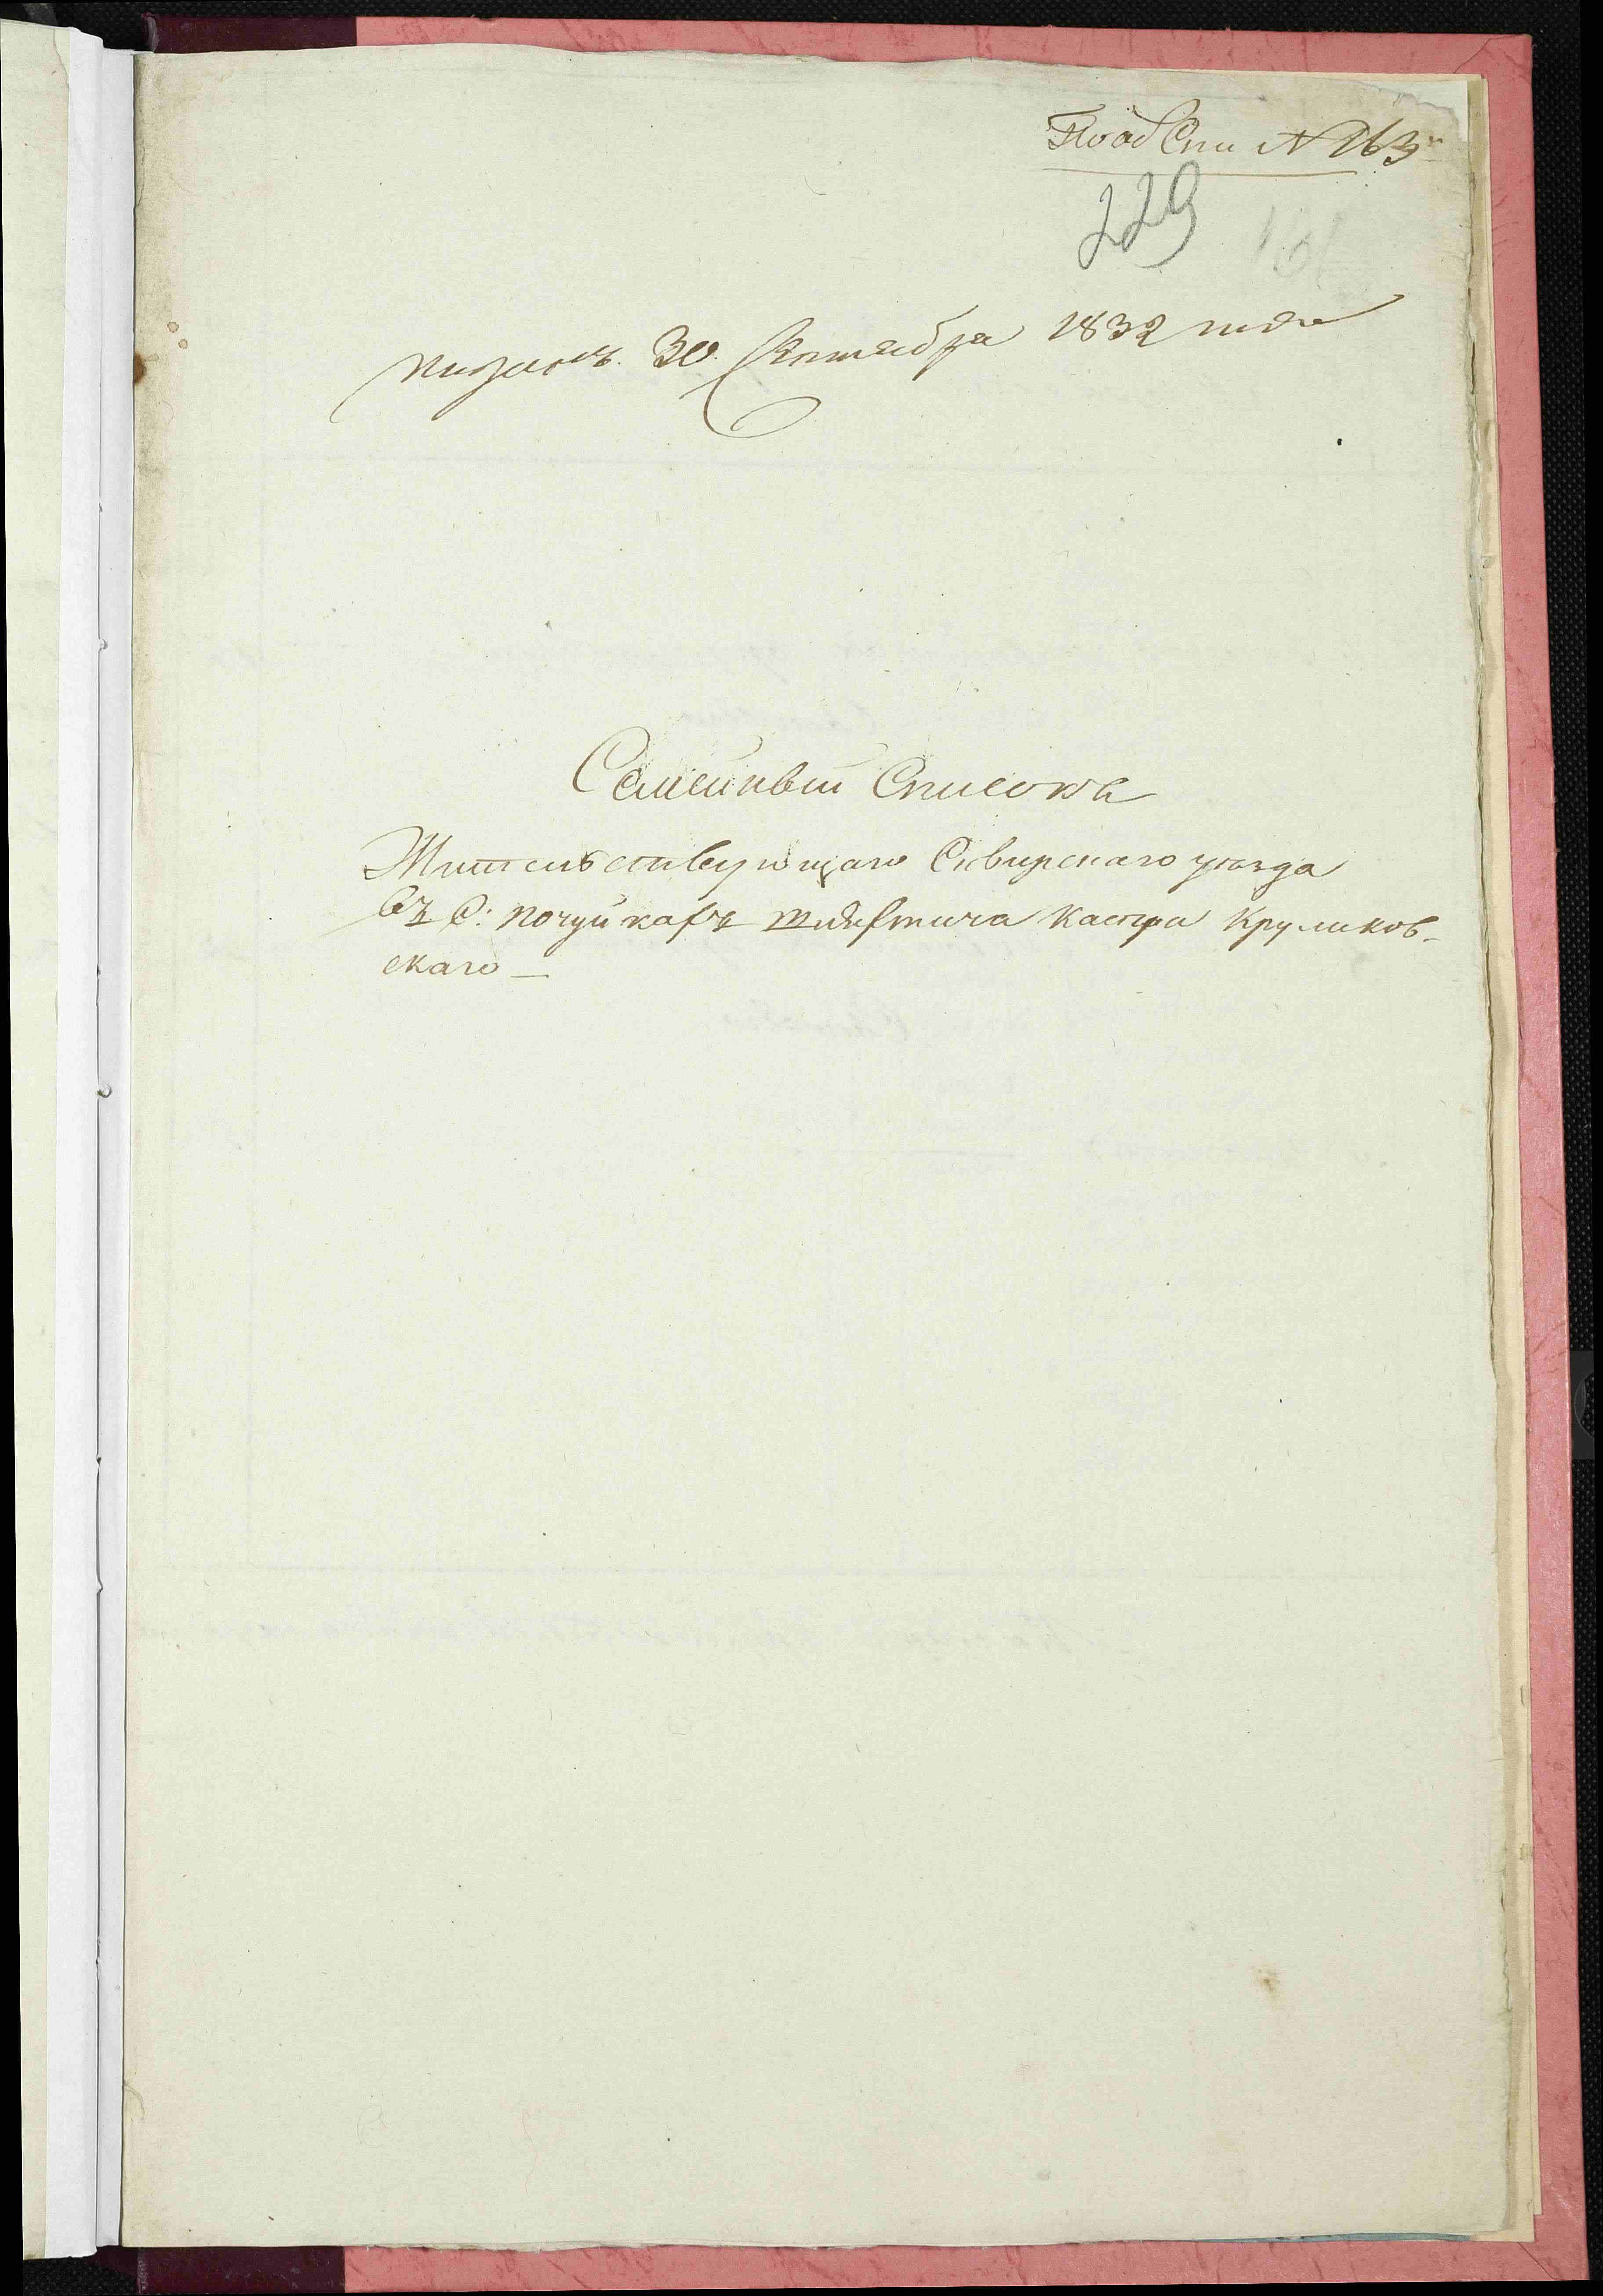 Под Спи № 163
229
161
30. Сентября 1832 года
Семейный Списокъ
Жительствующаго Сквирскаго уѣзда
Въ С: Почуйкахъ Шляхтича Каспра Круликов-
скаго —